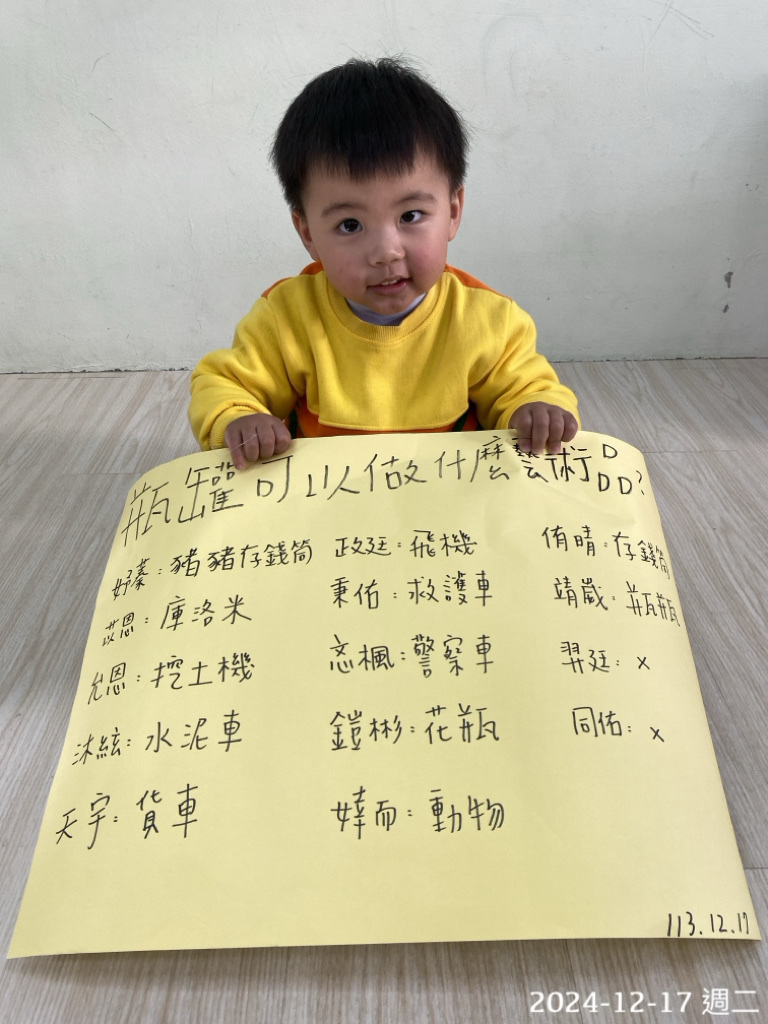 瓶罐可以做什麼藝術品?
妤蓁:豬豬存錢筒
苡恩:庫洛米
允恩:挖土機
沐絃:水泥車
天宇:貨車
政廷:飛機
秉佑:救護車
忞楓:警察車
鎧彬:花瓶
婞而:動物
侑晴:存錢筒
靖崴:瓶瓶
羿廷:x
同佑:x
113.12.17
2024-12-17 週二